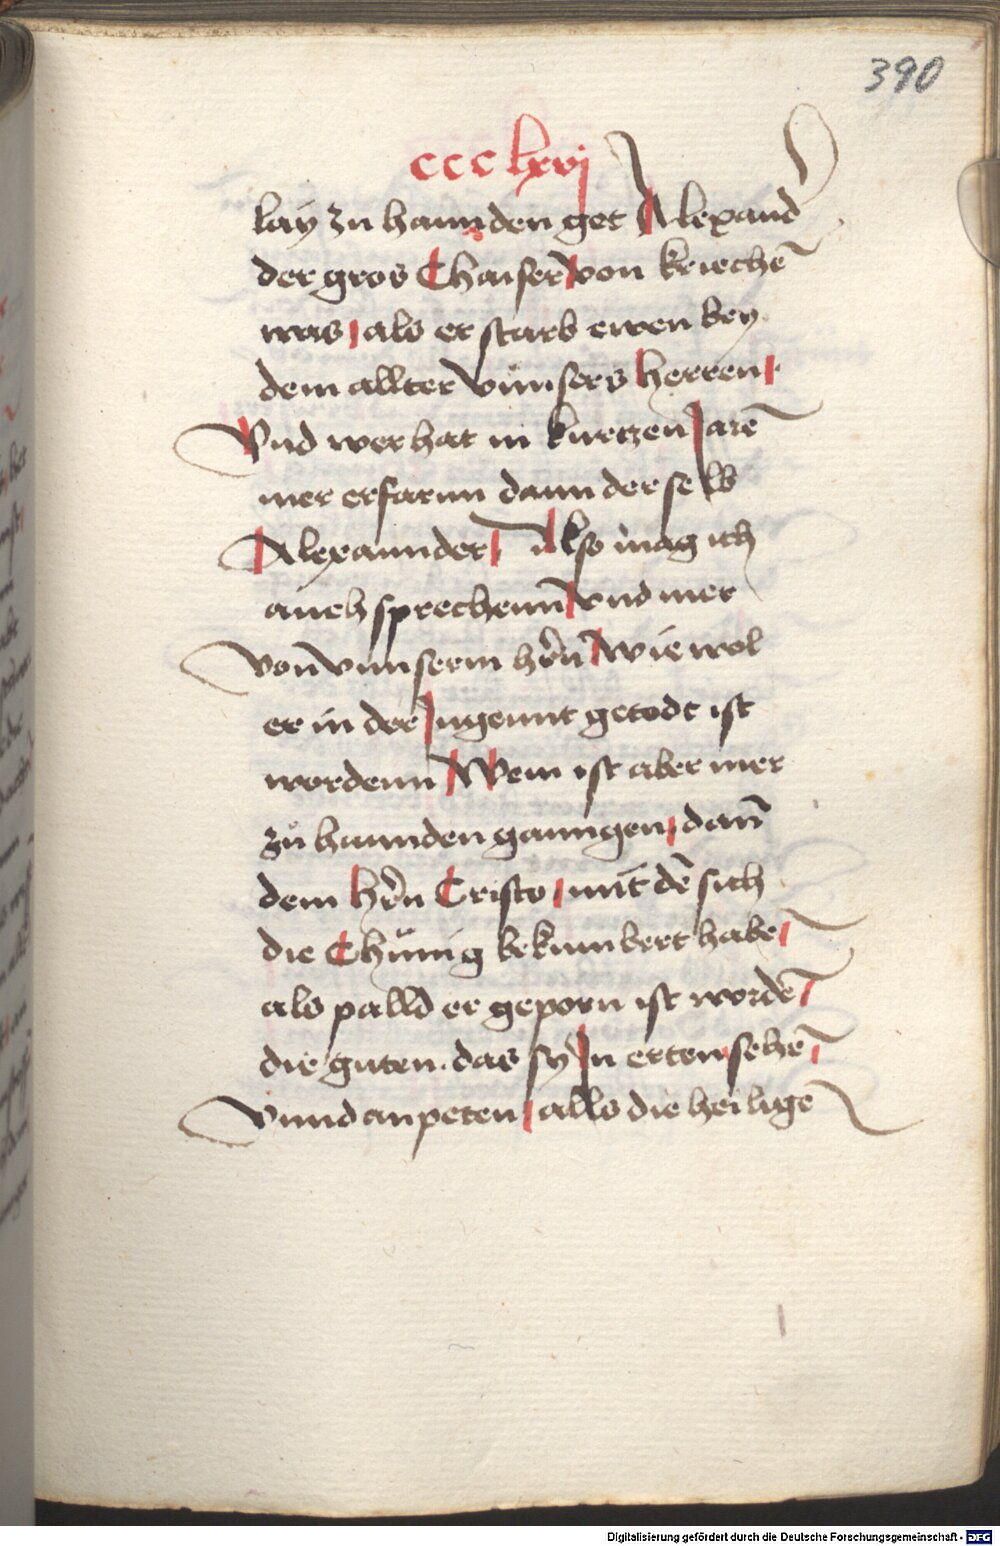 390
ccc lxvj
lay zu hannden get Alexand
der gros Chaiser von kriechē
was als er starb ewen bey
dem allter vnnsers herren
Vnd wer hat in kurtzen Jarē
mer erfarnn dann derselb
Alexannder Also mag ich
auch sprechenn vnd mer
von vnnserm hr̄n wie wol
er in der Jugennt getodt ist
wordenn Wem ist aber mer
zu hannden ganngen dan̄
dem hr̄n Cristo mit dē sich
die Chünig bekumbert habē
als palld er geporn ist wordē
die guten. das sy Jn erten sehē
vnnd anpeten alls die heiligē
Digitalisierung gefördert durch die Deutsche Forschungsgemeinschaft - DFG